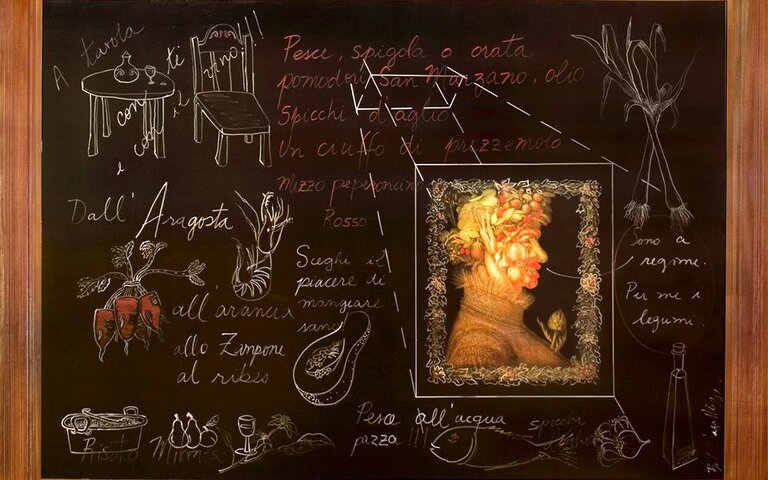 A tavola
con te
e con il vino!!!
Pesce, spigola o orata
pomodori San Marzano, olio
Spicchi d'aglio
Un ciuffo di prezzemolo
Mezzo peperoncino
Rosso
Dall'Aragosta
all'arancia
allo Zampone
al ribes
Sceghi il
piacere di
mangiare
sano
sono a
regime.
Per me i
legumi.
Pesce all'acqua
pazza!!!
spicchi